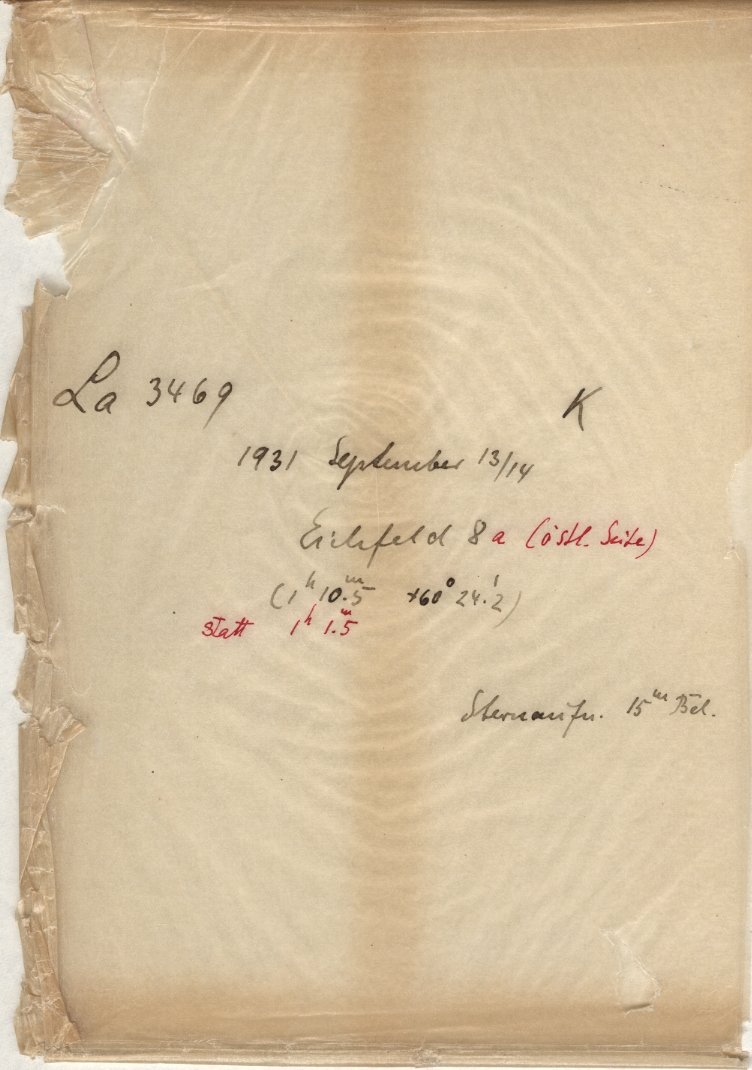 La 3469 K
1931 September 13/14
Eichfeld 8a (östl. Seite)
(1ʰ 10.ᵐ5 +60° 24.′2)
statt 1ʰ 1.ᵐ5
Sternaufn. 15ᵐ Bel.